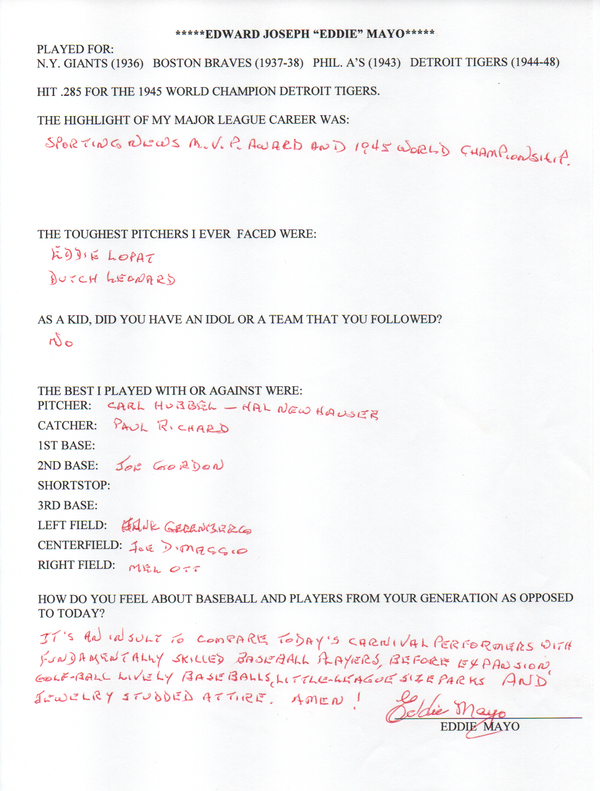 *****EDWARD JOSEPH “EDDIE” MAYO*****
PLAYED FOR:
N.Y. GIANTS (1936) BOSTON BRAVES (1937-38) PHIL. A’S (1943) DETROIT TIGERS (1944-48)
HIT .285 FOR THE 1945 WORLD CHAMPION DETROIT TIGERS.
THE HIGHLIGHT OF MY MAJOR LEAGUE CAREER WAS:
SPORTING NEWS M.V.P. AWARD AND 1945 WORLD CHAMPIONSHIP.
THE TOUGHEST PITCHERS I EVER FACED WERE:
EDDIE LOPAT
DUTCH LEONARD
AS A KID, DID YOU HAVE AN IDOL OR A TEAM THAT YOU FOLLOWED?
NO
THE BEST I PLAYED WITH OR AGAINST WERE:
PITCHER: CARL HUBBEL – HAL NEWHAUSER
CATCHER: PAUL RICHARD
1ST BASE:
2ND BASE: JOE GORDON
SHORTSTOP:
3RD BASE:
LEFT FIELD: HANK GREENBERG
CENTERFIELD: JOE DIMAGGIO
RIGHT FIELD: MEL OTT
HOW DO YOU FEEL ABOUT BASEBALL AND PLAYERS FROM YOUR GENERATION AS OPPOSED
TO TODAY?
IT'S AN INSULT TO COMPARE TODAY'S CARNIVAL PERFORMERS WITH
FUNDAMENTALLY SKILLED BASEBALL PLAYERS, BEFORE EXPANSION,
GOLF-BALL LIVELY BASEBALLS, LITTLE-LEAGUE SIZE PARKS AND
JEWELRY STUDDED ATTIRE. AMEN!
Eddie Mayo
EDDIE MAYO